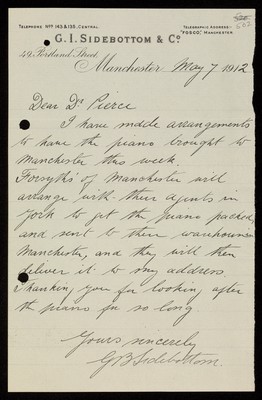 TELEPHONE NOS 145 & 135, CENTRAL.
TELEGRAPHIC ADDRESS:
"FOSCO," MANCHESTER
G. I. SIDEBOTTOM & Co.
49, Portland Street
Manchester May 7 1912
Dear Dr Pierce
I have made arrangements
to have the piano brought to
Manchester this week.
Forsyth's of Manchester will
arrange with their Agents in
York to get the piano packed
and sent to their warehouse in
Manchester, and they will then
deliver it to my address.
Thanking you for looking after
the piano for so long.
Yours sincerely
G B Sidebottom.